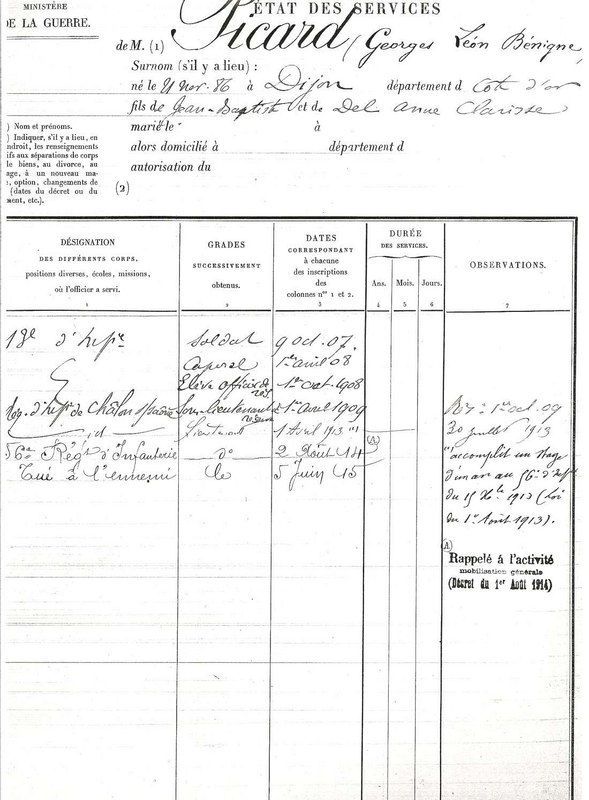 MINISTÈRE
DE LA GUERRE.
ÉTAT DES SERVICES
de M. (1) Picard, Georges Léon Bénigne
Surnom (s'il y a lieu) :
né le 21 nov. 86 à Dijon département d Côte d'or
fils de Jean-Baptiste et de Del Anne Clarisse
marié le à
alors domicilié à département d
autorisation du
(2)
) Nom et prénoms.
) Indiquer, s'il y a lieu, en
ndroit, les renseignements
ifs aux séparations de corps
le biens, au divorce, au
age, à un nouveau ma-
, option, changements de
(dates du décret ou du
ment, etc.).
DÉSIGNATION
DES DIFFÉRENTS CORPS,
positions diverses, écoles, missions,
où l'officier a servi.
1
GRADES
SUCCESSIVEMENT
obtenus.
2
DATES
CORRESPONDANT
à chacune
des inscriptions
des
colonnes nos 1 et 2.
3
DURÉE
DES SERVICES.
Ans. Mois. Jours.
4 5 6
OBSERVATIONS.
7
d'Infie Soldat 9 oct. 07.
Caporal 1er avril 08
Elève officier de rés. 1er oct. 1908
d'Infie de Châlon s/Saône Sous-lieutenant réserve 1er avril 1909
id Lieutenant 1 Avril 1913
56e Régt d'Infanterie do 2 Août 14 (A)
Tué à l'ennemi le 5 Juin 15
1er oct. 09
30 juillet 1913
accompli un stage
d'un an au 56e d'Infie
du 15 Xbre 1912 (Loi
du 1er Août 1913).
(A)
Rappelé à l'activité
mobilisation générale
(Décret du 1er Août 1914)